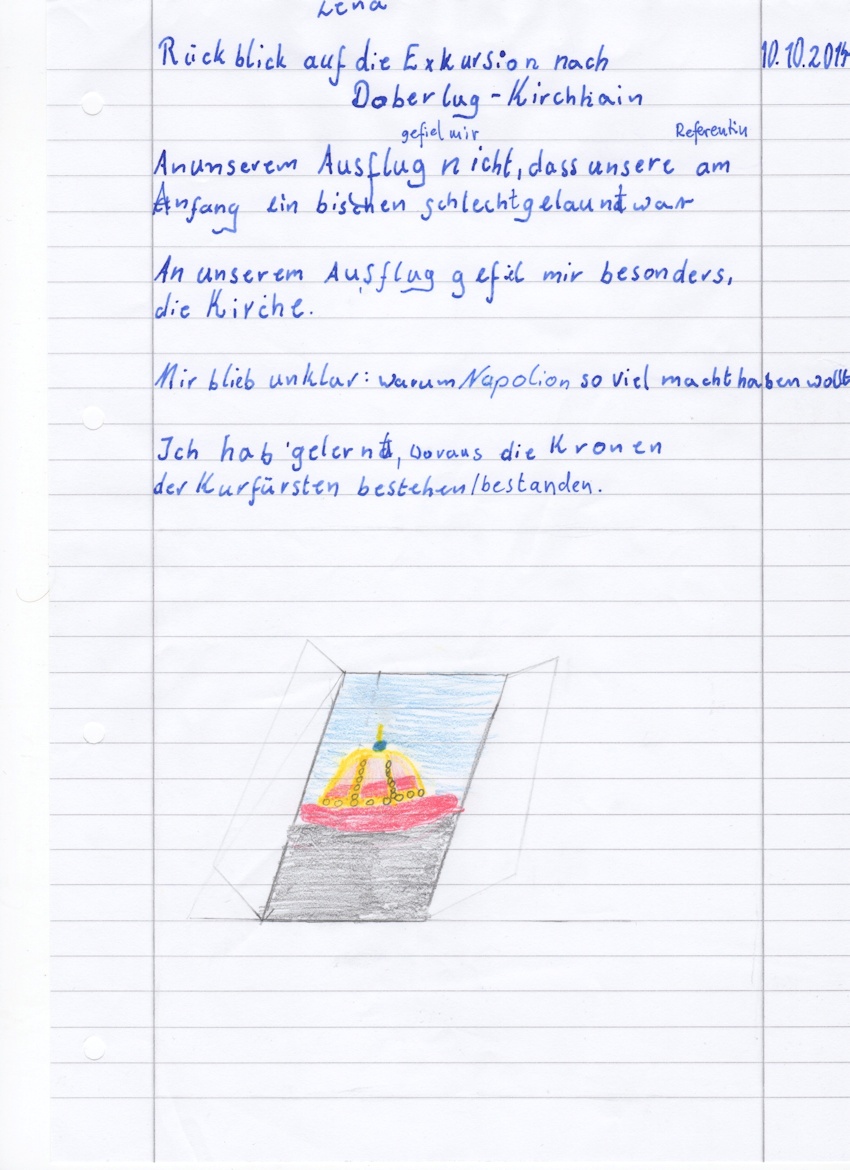 Lena
Rückblick auf die Exkursion nach 10.10.2014
Doberlug-Kirchhain
gefiel mir Referentin
An unserem Ausflug nicht, dass unsere am
Anfang ein bischen schlecht gelaunt war
An unserem Ausflug gefiel mir besonders,
die Kirche.
Mir blieb unklar: warum Napolion so viel macht haben wollt
Ich hab' gelernt, woraus die Kronen
der Kurfürsten bestehen/bestanden.